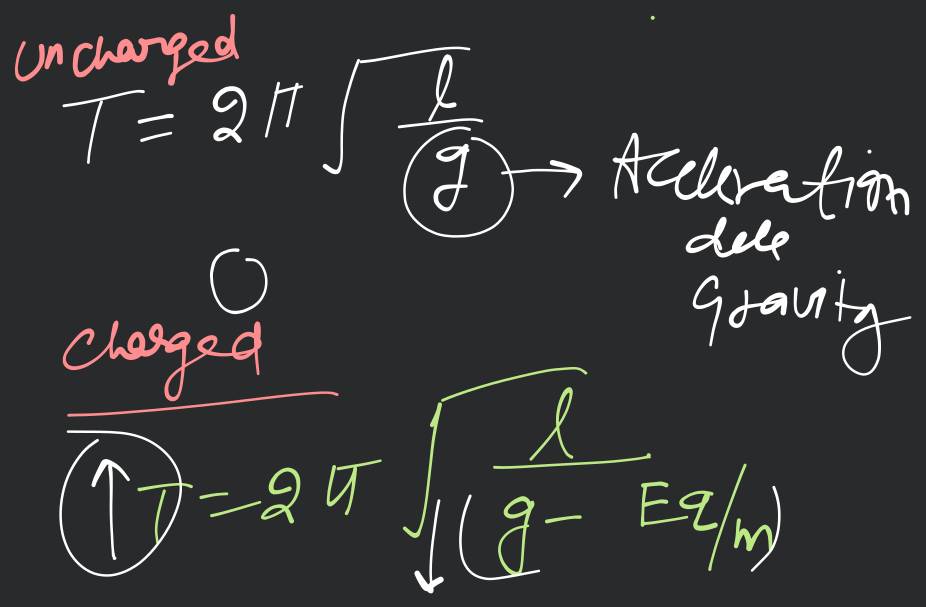 Uncharged
T = 2π √ l / g → Acceleration
due
Gravity
O
Charged
↑ T = 2π √ l / ↓ (g - Eq/m)